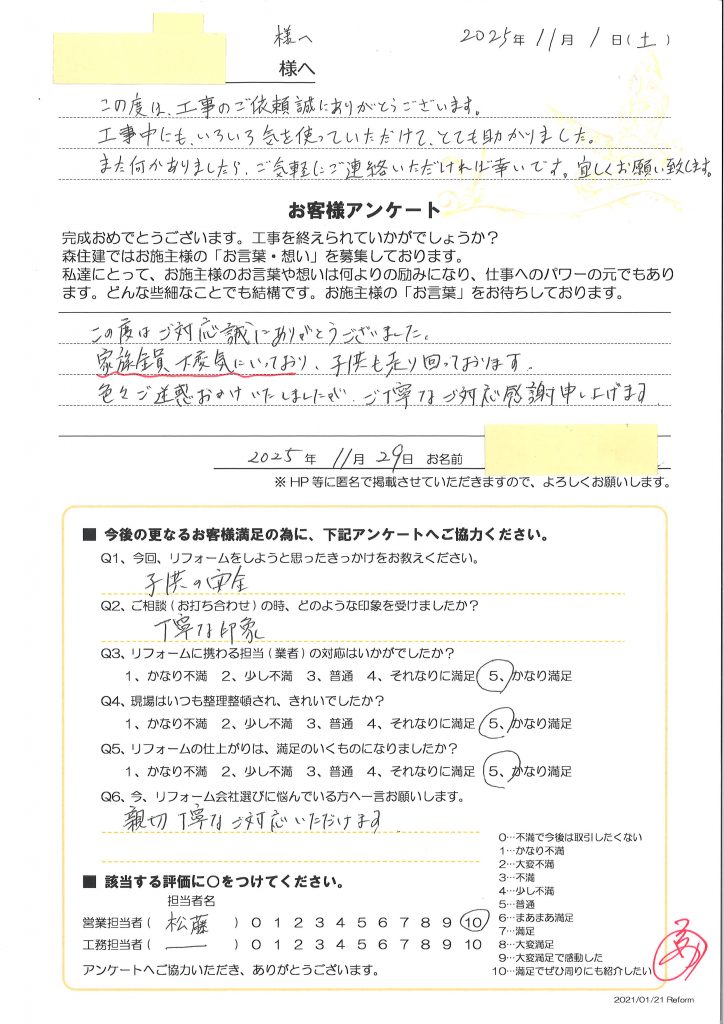 様へ 2025年 11月 1日(土)
様へ
この度は、工事のご依頼誠にありがとうございます。
工事中にも、いろいろ気を使っていただけて、とても助かりました。
また何かありましたら、ご気軽にご連絡いただければ幸いです。宜しくお願い致します。
お客様アンケート
完成おめでとうございます。工事を終えられていかがでしょうか?
森住建ではお施主様の「お言葉・想い」を募集しております。
私達にとって、お施主様のお言葉や想いは何よりの励みになり、仕事へのパワーの元でもあり
ます。どんな些細なことでも結構です。お施主様の「お言葉」をお待ちしております。
この度はご対応誠にありがとうございました。
家族全員大変気にいっており、子供も走り回っております。
色々ご迷惑おかけいたしましたが、ご丁寧なご対応感謝申し上げます
2025年 11月 29日 お名前
※HP等に匿名で掲載させていただきますので、よろしくお願いします。
■ 今後の更なるお客様満足の為に、下記アンケートへご協力ください。
Q1、今回、リフォームをしようと思ったきっかけをお教えください。
子供の安全
Q2、ご相談(お打ち合わせ)の時、どのような印象を受けましたか?
丁寧な印象
Q3、リフォームに携わる担当(業者)の対応はいかがでしたか?
1、かなり不満 2、少し不満 3、普通 4、それなりに満足 5、かなり満足
Q4、現場はいつも整理整頓され、きれいでしたか?
1、かなり不満 2、少し不満 3、普通 4、それなりに満足 5、かなり満足
Q5、リフォームの仕上がりは、満足のいくものになりましたか?
1、かなり不満 2、少し不満 3、普通 4、それなりに満足 5、かなり満足
Q6、今、リフォーム会社選びに悩んでいる方へ一言お願いします。
親切丁寧なご対応いただけます
■ 該当する評価に○をつけてください。
担当者名
営業担当者( 松藤 ) 0 1 2 3 4 5 6 7 8 9 10
工務担当者( ― ) 0 1 2 3 4 5 6 7 8 9 10
アンケートへご協力いただき、ありがとうございます。
0…不満で今後は取引したくない
1…かなり不満
2…大変不満
3…不満
4…少し不満
5…普通
6…まあまあ満足
7…満足
8…大変満足
9…大変満足で感動した
10…満足でぜひ周りにも紹介したい
2021/01/21 Reform